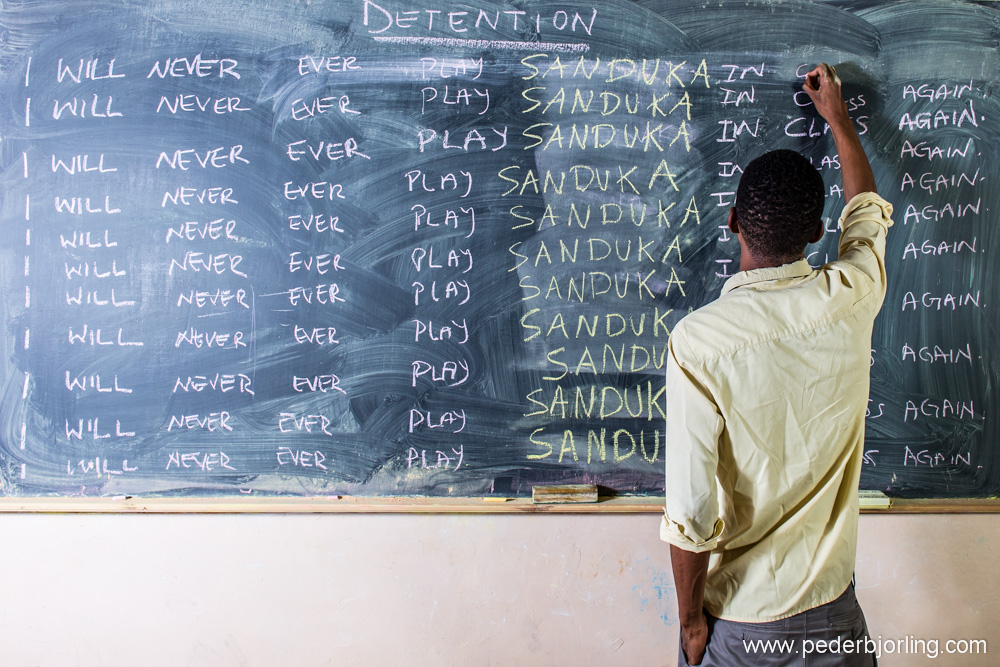 DETENTION
I WILL NEVER EVER PLAY SANDUKA IN C
I WILL NEVER EVER PLAY SANDUKA IN CLASS AGAIN.
I WILL NEVER EVER PLAY SANDUKA IN CLASS AGAIN.
I WILL NEVER EVER PLAY SANDUKA IN LASS AGAIN.
I WILL NEVER EVER PLAY SANDUKA AGAIN.
I WILL NEVER EVER PLAY SANDUKA AGAIN.
I WILL NEVER EVER PLAY SANDUKA AGAIN.
I WILL NEVER EVER PLAY SANDUKA AGAIN.
I WILL NEVER EVER PLAY SANDU AGAIN.
I WILL NEVER EVER PLAY SANDUK AGAIN.
I WILL NEVER EVER PLAY SANDU AGAIN.
www.pederbjorling.com